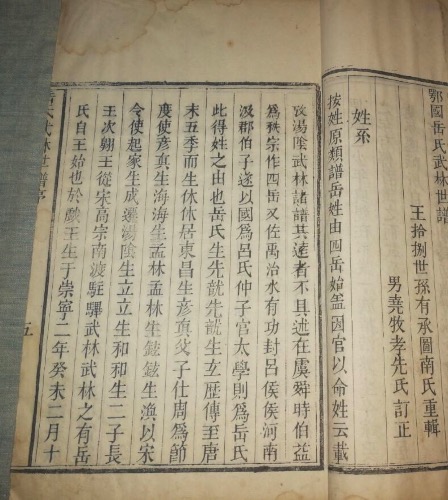 鄂國岳氏武林世譜
王拾捌世孫有承圖南氏重輯
男堯牧孝先氏訂正
姓系
按姓原類譜岳姓由四岳始盖因官以命姓云載
攷湯陰武林諸譜其遠者不具述在虞舜時伯益
為秩宗作四岳又佐禹治水有功封呂侯侯河南
汲郡伯子遂以國為呂氏仲子官太學則為岳氏
此得姓之由也岳氏生先就先龍生立歷傳至唐
末五季而生休休居東昌生彥真父子仕周為節
度使彥真生海海生孟林孟林生鉉鉉生渙以宋
令使起家生成遷湯陰生立立生和和生二子長
王次翱王從宋高宗南渡駐驆武林武林之有岳
氏自王始也於戲王生于崇寧二年癸未二月十
岳氏武林世譜序
五